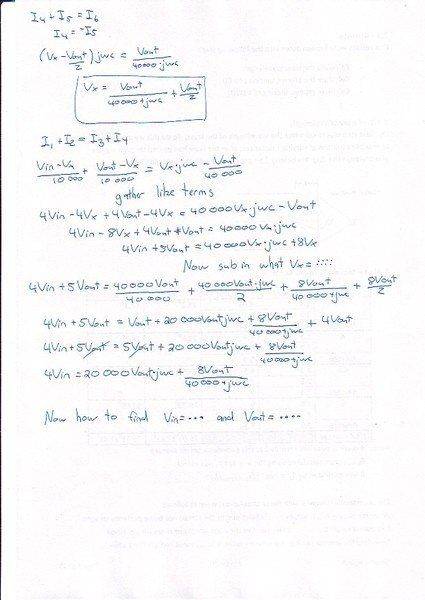 I4 + I5 = I6
I4 = -I5
(Vx - Vout/2) jwc = Vout/40000·jwc
Vx = Vout/40000+jwc + Vout/2
I1 + I2 = I3 + I4
Vin-Vx/10000 + Vout-Vx/10000 = Vx·jwc - Vout/40000
gather like terms
4Vin - 4Vx + 4Vout - 4Vx = 40000Vx·jwc - Vout
4Vin - 8Vx + 4Vout + Vout = 40000Vx·jwc
4Vin + 5Vout = 40000Vx·jwc + 8Vx
Now sub in what Vx = ....
4Vin + 5Vout = 40000Vout/40000 + 40000Vout·jwc/2 + 8Vout/40000+jwc + 8Vout/2
4Vin + 5Vout = Vout + 20000Voutjwc + 8Vout/40000+jwc + 4Vout
4Vin + 5Vout = 5Vout + 20000Voutjwc + 8Vout/40000+jwc
4Vin = 20000Vout·jwc + 8Vout/40000+jwc
Now how to find Vin = ... and Vout = ....